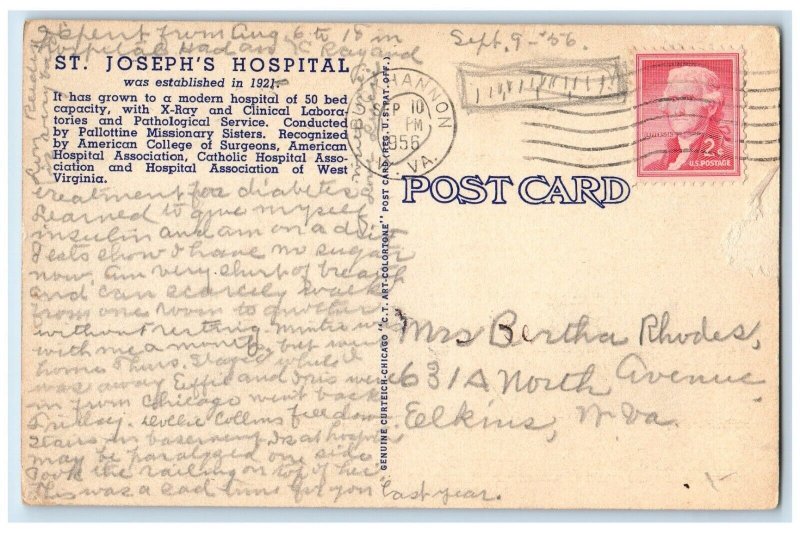 I spent from Aug. 6 to 18 in
Hospital. Had an X Ray and
Sept. 9 - 56.
ST. JOSEPH'S HOSPITAL
was established in 1921.
It has grown to a modern hospital of 50 bed
capacity, with X-Ray and Clinical Labora-
tories and Pathological Service. Conducted
by Pallottine Missionary Sisters. Recognized
by American College of Surgeons, American
Hospital Association, Catholic Hospital Asso-
ciation and Hospital Association of West
Virginia.
treatment for diabetes
Learned to give myself
insulin and am on a diet
Tests show I have no sugar
now. Am very short of breath
and can scarcely walk
from one room to another
without resting. Mintie was
with me a month, but went
home Thurs. while I
was away Effie and Iris were
in from Chicago went back
Friday. Collins fell down
stairs in basement. Is at hospital
may be paralyzed one side
Took the railing on top of her
This was a sad time for you last year.
GENUINE CURTEICH-CHICAGO "C.T. ART-COLORTONE" POST CARD (REG. U.S. PAT. OFF.)
BUCKHANNON
SEP 10
PM
1956
W. VA.
JEFFERSON
2¢
U.S. POSTAGE
POST CARD
Mrs Bertha Rhodes,
631A North Avenue
Elkins, W. Va.